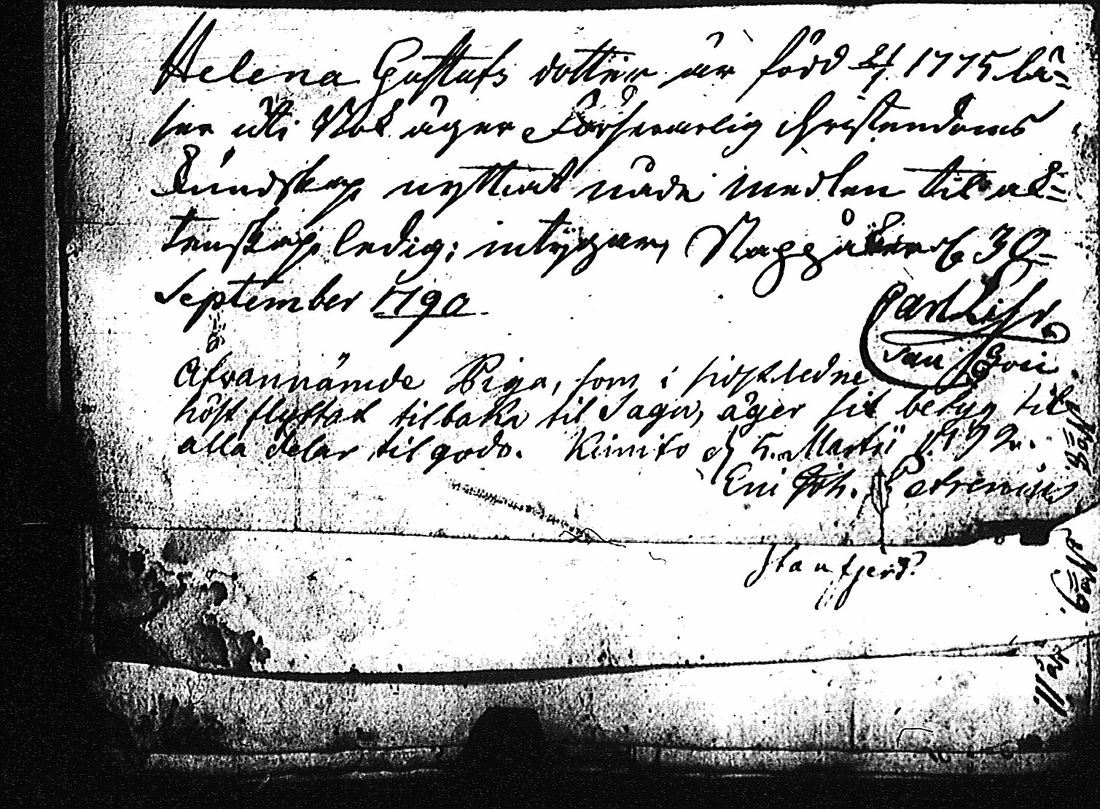 Helena Gustafs dotter är född 2/7 1775 lä=
ser uti Bok äger Försvarlig Christendoms
Kündskap nyttiat nåde medlen til äk=
tenskap ledig; intygar, 30
September 1790.
Carl
Ofvannämde Piga, som i sidstledne
höst flyttat tilbaka til Sagu, äger sit betyg til
alla delar til godo. Kimito d. 5. Martii 1792.
Joh. Petrenius